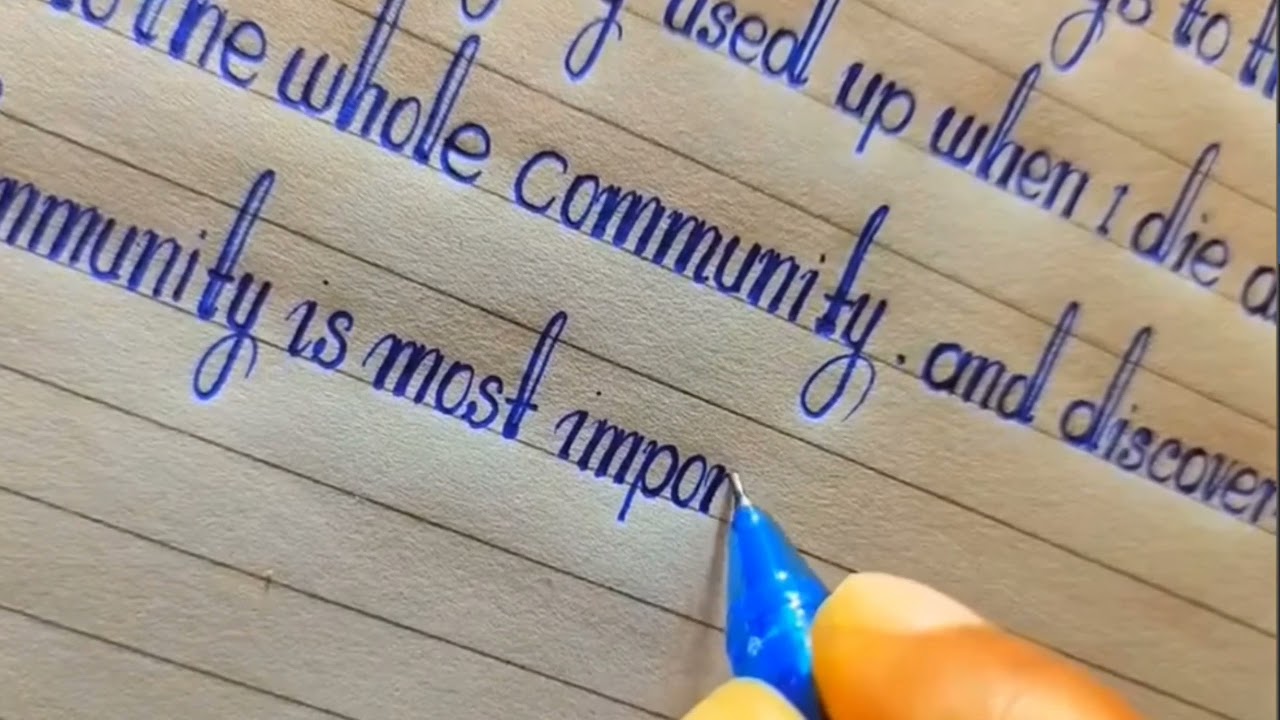 to
used up when I die
the whole community. and discover
mmunity is most impor